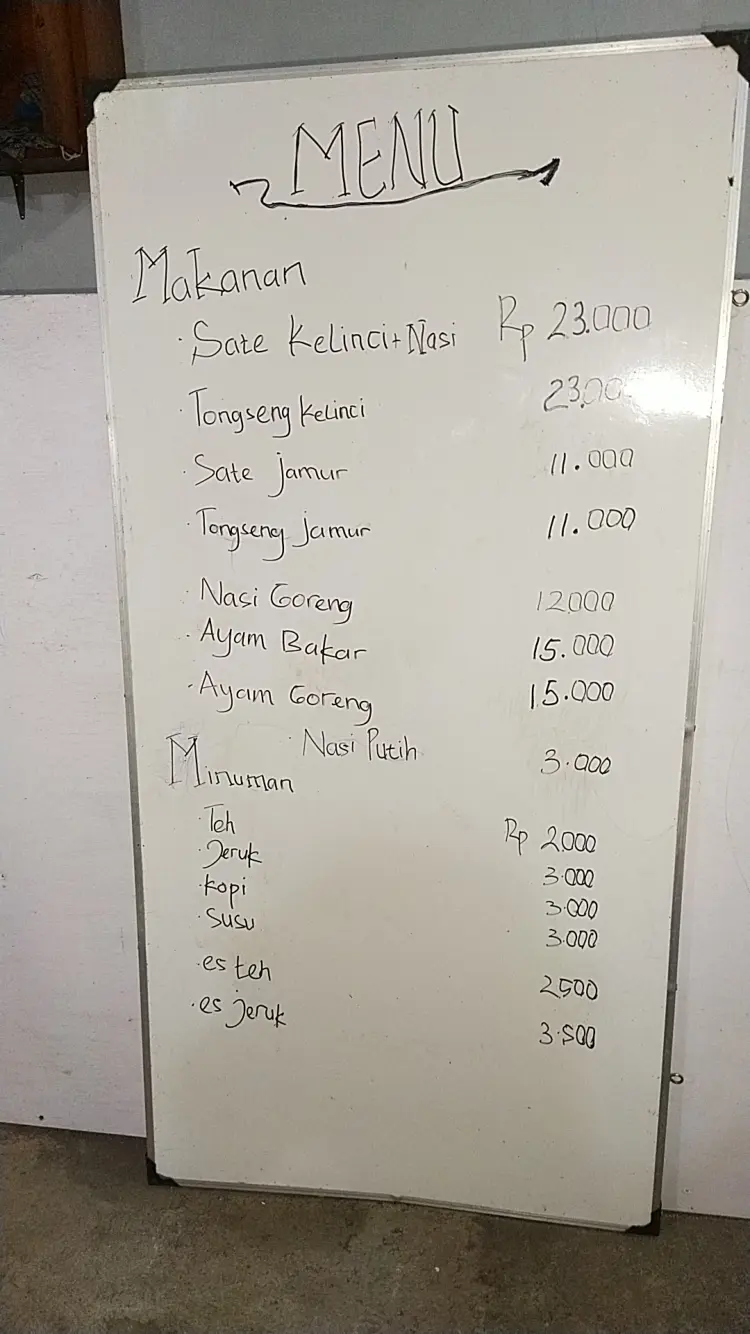 MENU
Makanan
· Sate Kelinci + Nasi Rp 23.000
· Tongseng Kelinci 23.00
· Sate Jamur 11.000
· Tongseng Jamur 11.000
· Nasi Goreng 12000
· Ayam Bakar 15.000
· Ayam Goreng 15.000
· Nasi Putih 3.000
Minuman
· Teh Rp 2000
· Jeruk 3.000
· Kopi 3.000
· Susu 3.000
· es teh 2500
· es Jeruk 3.500